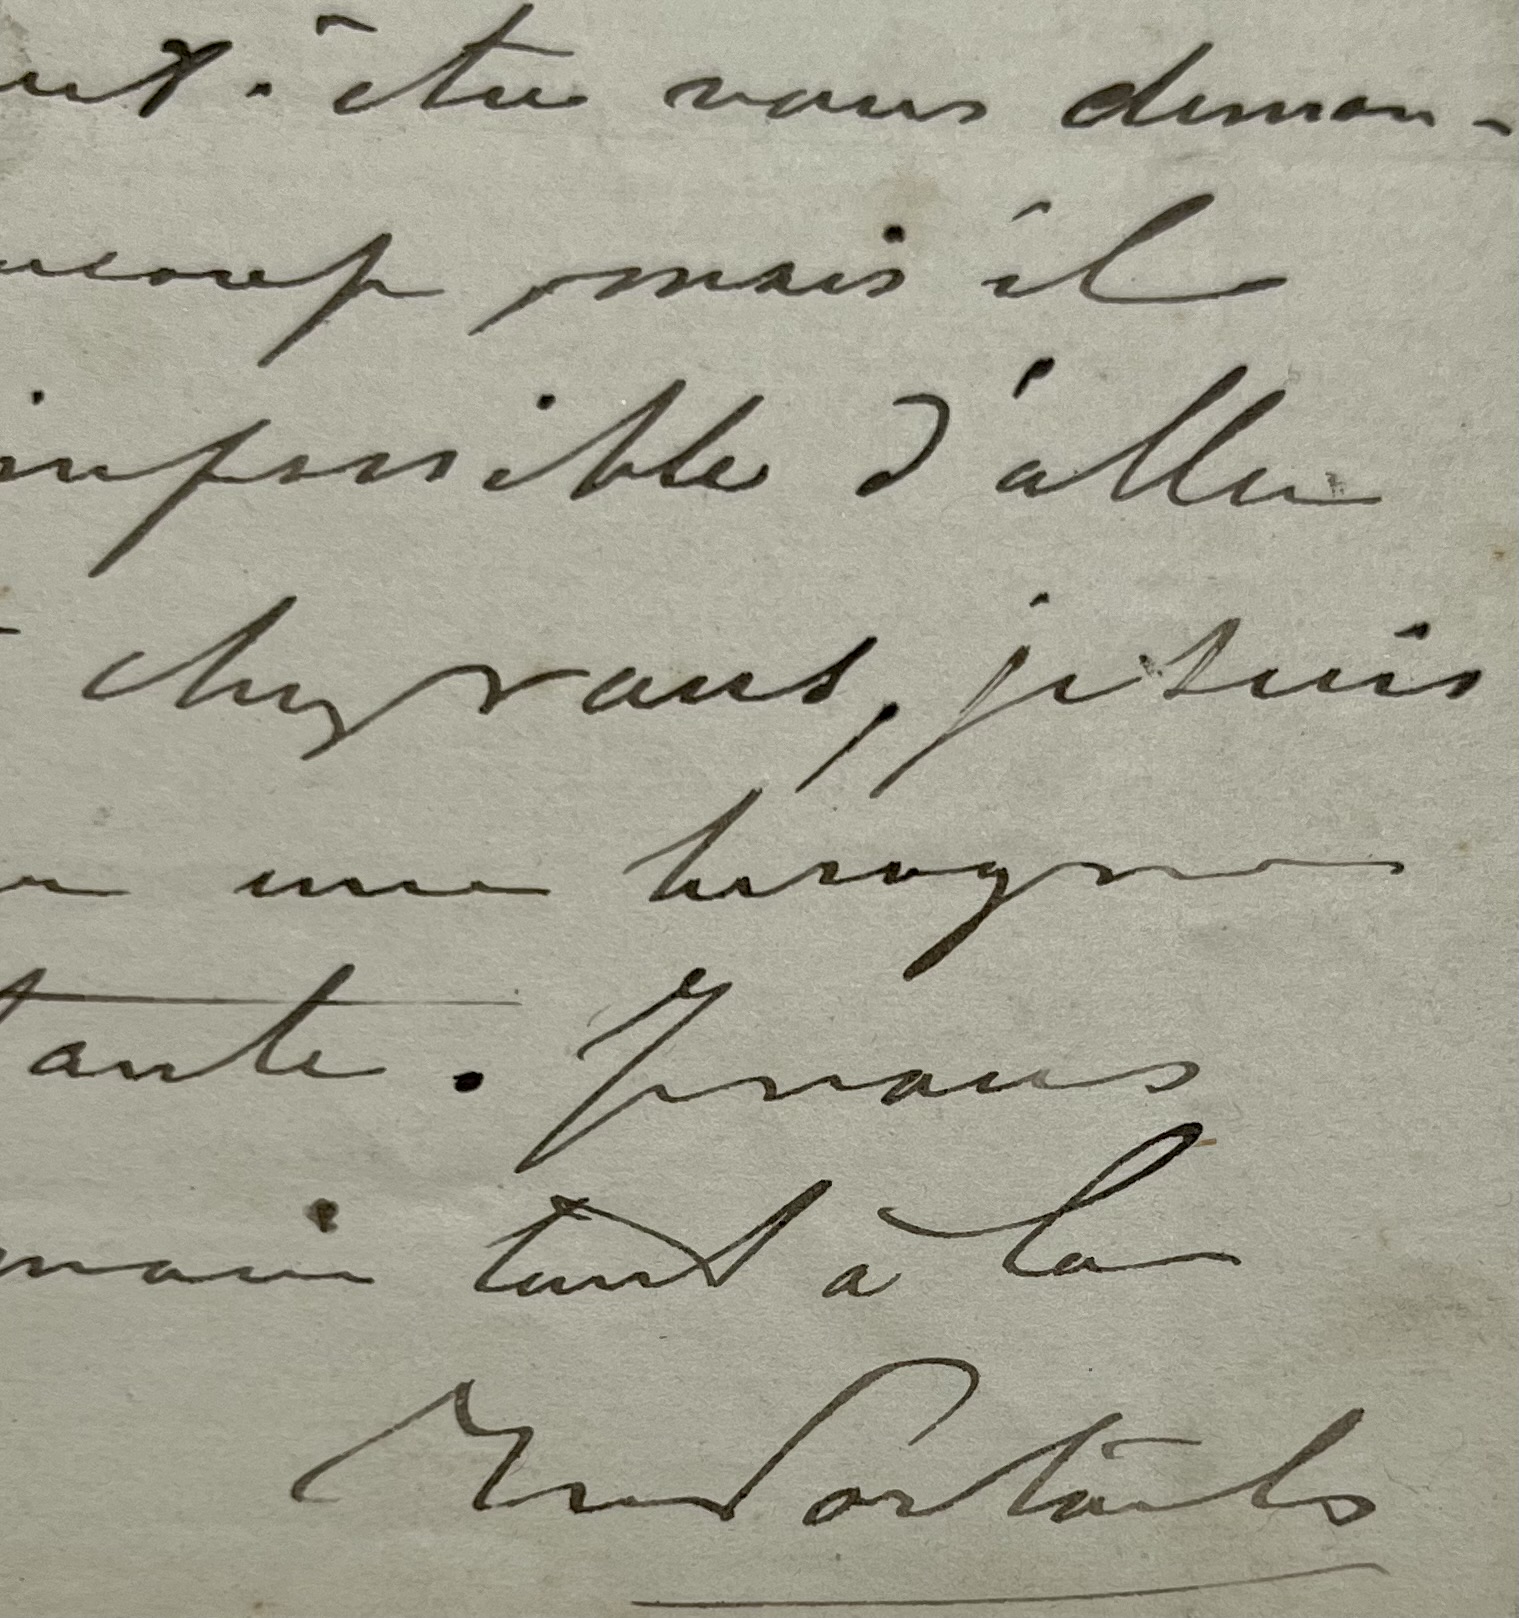 eut-être vous deman-
ucoup, mais il
impossible d'aller
chez vous, je suis
une besogne
tante. Je vous
main tout à la
Portaels